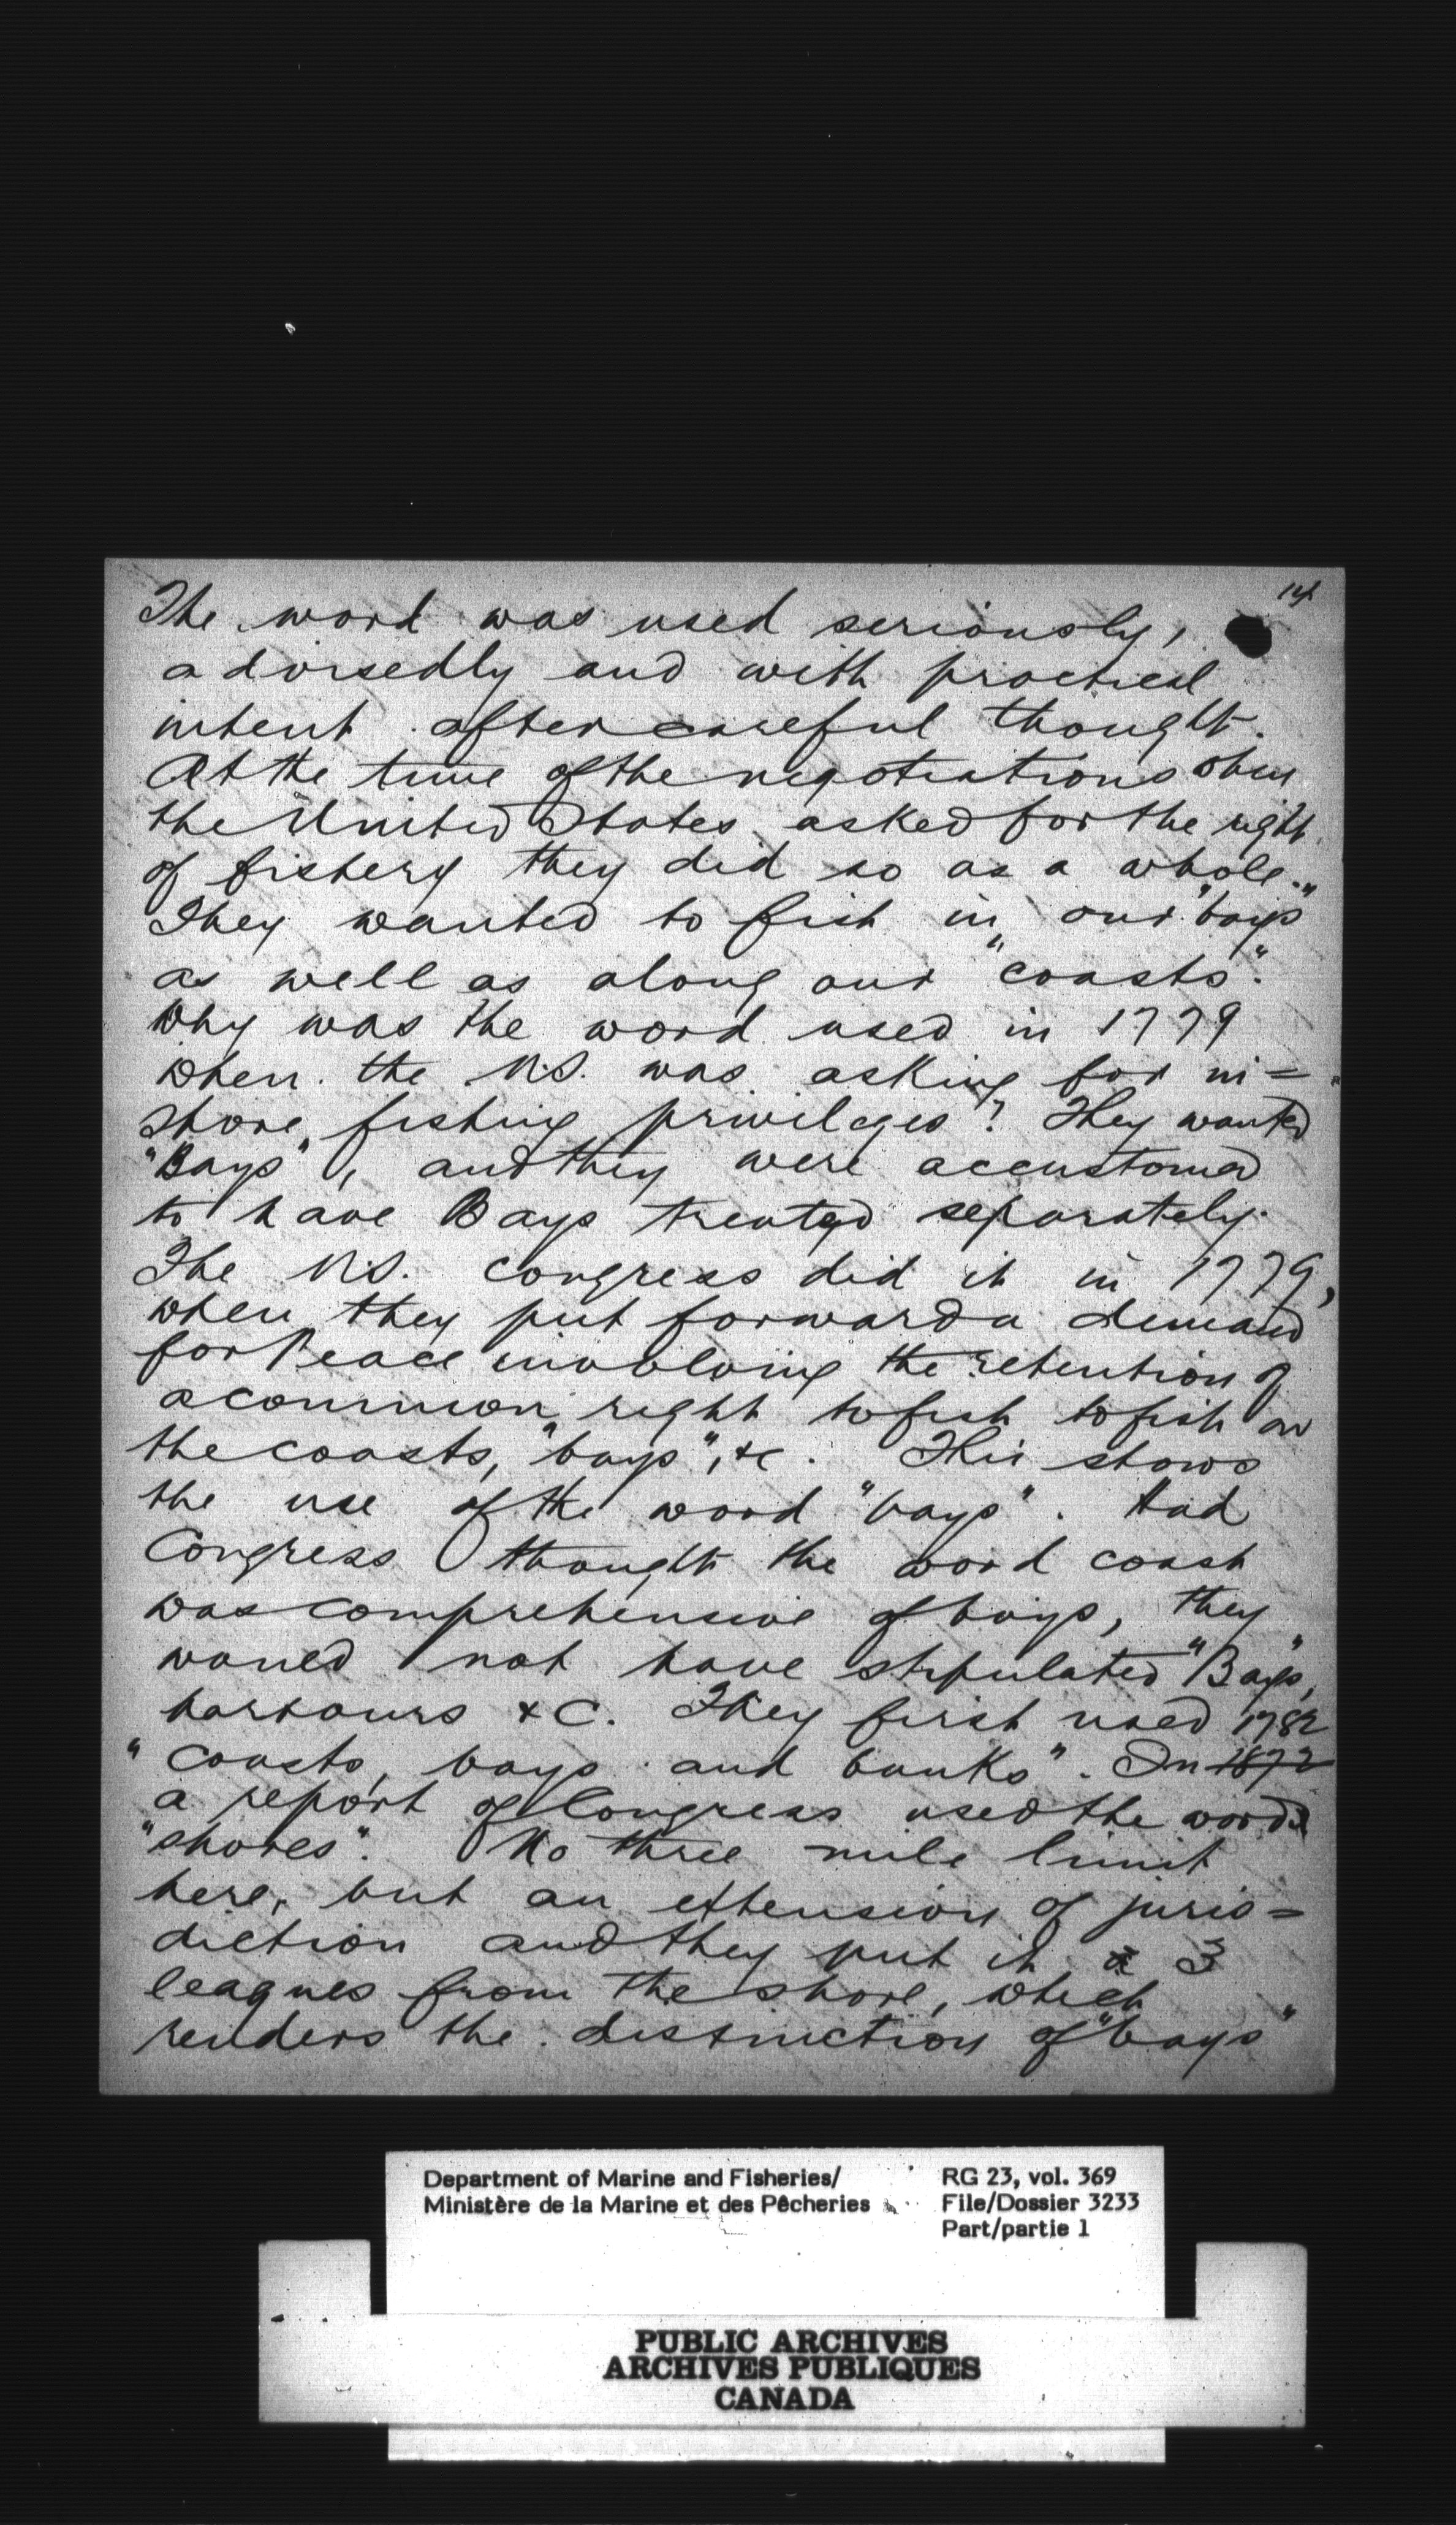 14
The word was used seriously,
advisedly and with practical
intent after careful thought.
At the time of the negotiations when
the United States asked for the right
of fishery they did so as a whole.
They wanted to fish in our "bays"
as well as along our "coasts".
Why was the word used in 1779
when the U.S. was asking for in=
shore fishing privileges? They wanted
"Bays", and they were accustomed
to have Bays treated separately.
The U.S. Congress did it in 1779,
when they put forward a demand
for Peace involving the retention of
a common right to fish to fish on
the coasts, "bays", &c. This shows
the use of the word "bays". Had
Congress thought the word coast
was comprehensive of bays, they
would not have stipulated "Bays",
harbours &c. They first used
"coasts, bays and banks". In 1872 1782
a report of Congress used the words
"shores". No three mile limit
here, but an extension of juris=
diction and they put it a 3
leagues from the shore, which
renders the distinction of "bays"
Department of Marine and Fisheries/
Ministère de la Marine et des Pêcheries
RG 23, vol. 369
File/Dossier 3233
Part/partie 1
PUBLIC ARCHIVES
ARCHIVES PUBLIQUES
CANADA